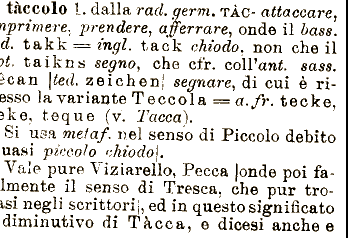 tàccolo 1. dalla rad. germ. TÀC- attaccare,
mprimere, prendere, afferrare, onde il bass.
d. takk = ingl. tack chiodo, non che il
ot. taikns segno, che cfr. coll'ant. sass.
êcan [ted. zeichen] segnare, di cui è ri-
esso la variante Teccola = a.fr. tecke,
eke, teque (v. Tacca).
Si usa metaf. nel senso di Piccolo debito
uasi piccolo chiodo].
Vale pure Viziarello, Pecca [onde poi fa-
lmente il senso di Tresca, che pur tro-
asi negli scrittori], ed in questo significato
diminutivo di Tàcca, e dicesi anche e